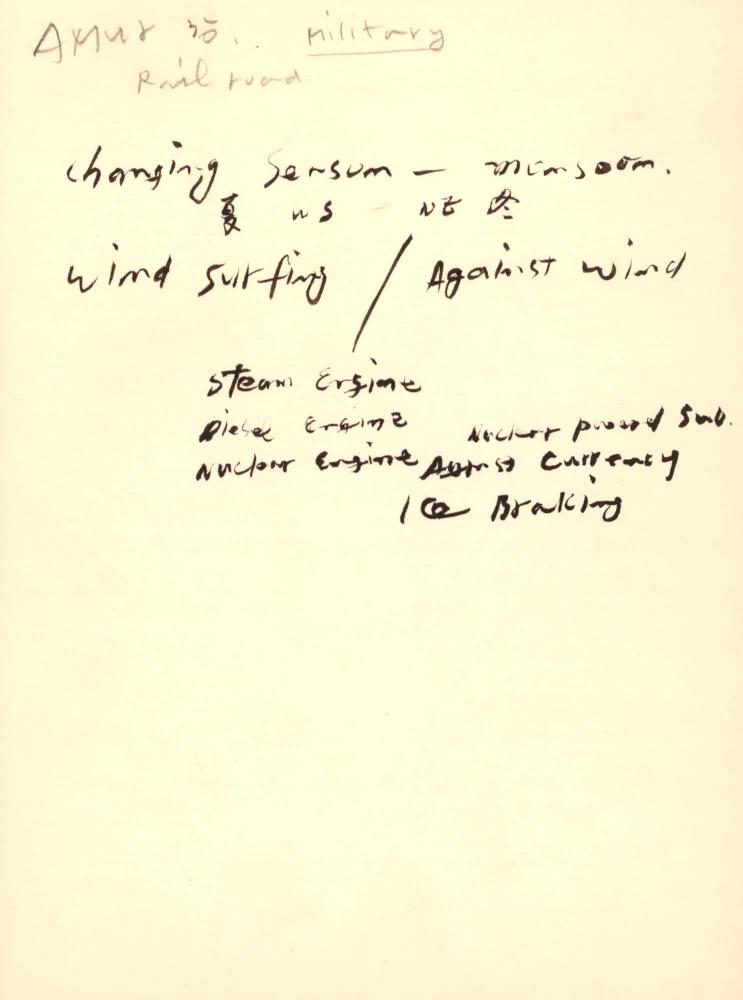 Amur 강. Military
Rail road
Changing Senson — monsoon.
夏 WS NE 冬
Wind Surfing / Against Wind
Steam Engine
Diesel Engine Nuclear powerd Sub.
Nuclear Engine Against Currency
Ice Braking